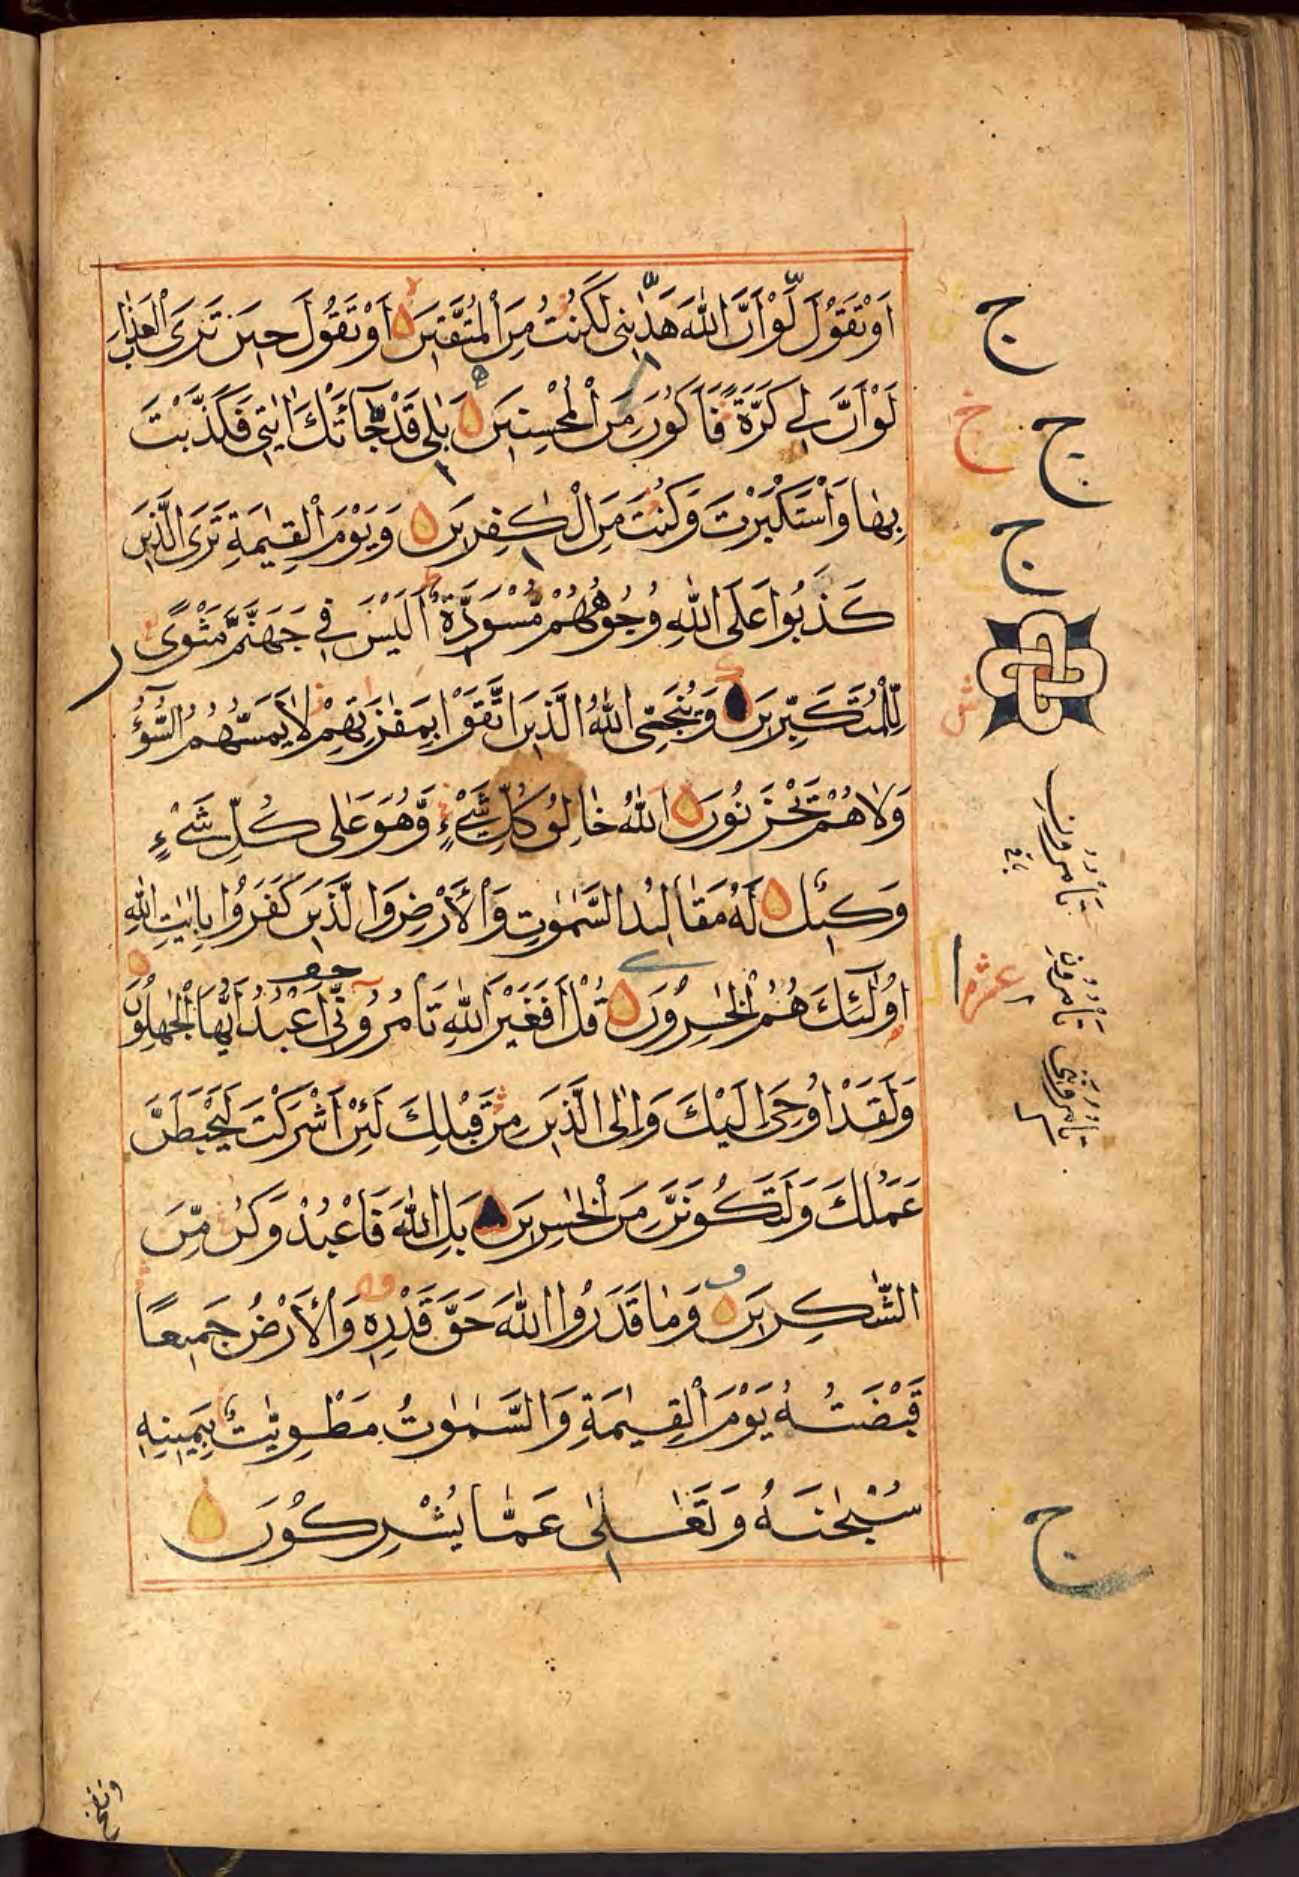 اَوْ تَقُوْلَ لَوْ اَنَّ اللّٰهَ هَدٰىنِى لَكُنْتُ مِنَ الْمُتَّقِيْنَ اَوْ تَقُوْلَ حِيْنَ تَرَى الْعَذَابَ
لَوْ اَنَّ لِى كَرَّةً فَاَكُوْنَ مِنَ الْمُحْسِنِيْنَ بَلٰى قَدْ جَآءَتْكَ اٰيٰتِى فَكَذَّبْتَ
بِهَا وَاسْتَكْبَرْتَ وَكُنْتَ مِنَ الْكٰفِرِيْنَ وَيَوْمَ الْقِيٰمَةِ تَرَى الَّذِيْنَ
كَذَبُوْا عَلَى اللّٰهِ وُجُوْهُهُمْ مُّسْوَدَّةٌ اَلَيْسَ فِى جَهَنَّمَ مَثْوًى
لِّلْمُتَكَبِّرِيْنَ وَيُنَجِّى اللّٰهُ الَّذِيْنَ اتَّقَوْا بِمَفَازَتِهِمْ لَا يَمَسُّهُمُ السُّوْٓءُ
وَلَا هُمْ يَحْزَنُوْنَ اَللّٰهُ خَالِقُ كُلِّ شَىْءٍ وَّهُوَ عَلٰى كُلِّ شَىْءٍ
وَكِيْلٌ لَهٗ مَقَالِيْدُ السَّمٰوٰتِ وَالْاَرْضِ وَالَّذِيْنَ كَفَرُوْا بِاٰيٰتِ اللّٰهِ
اُولٰٓئِكَ هُمُ الْخٰسِرُوْنَ قُلْ اَفَغَيْرَ اللّٰهِ تَاْمُرُوْٓنِّى اَعْبُدُ اَيُّهَا الْجٰهِلُوْنَ
وَلَقَدْ اُوْحِىَ اِلَيْكَ وَاِلَى الَّذِيْنَ مِنْ قَبْلِكَ لَئِنْ اَشْرَكْتَ لَيَحْبَطَنَّ
عَمَلُكَ وَلَتَكُوْنَنَّ مِنَ الْخٰسِرِيْنَ بَلِ اللّٰهَ فَاعْبُدْ وَكُنْ مِّنَ
الشّٰكِرِيْنَ وَمَا قَدَرُوا اللّٰهَ حَقَّ قَدْرِهٖ وَالْاَرْضُ جَمِيْعًا
قَبْضَتُهٗ يَوْمَ الْقِيٰمَةِ وَالسَّمٰوٰتُ مَطْوِيّٰتٌ بِيَمِيْنِهٖ
سُبْحٰنَهٗ وَتَعٰلٰى عَمَّا يُشْرِكُوْنَ
ج
ج
خ
ج
عشر
ج
ونفخ